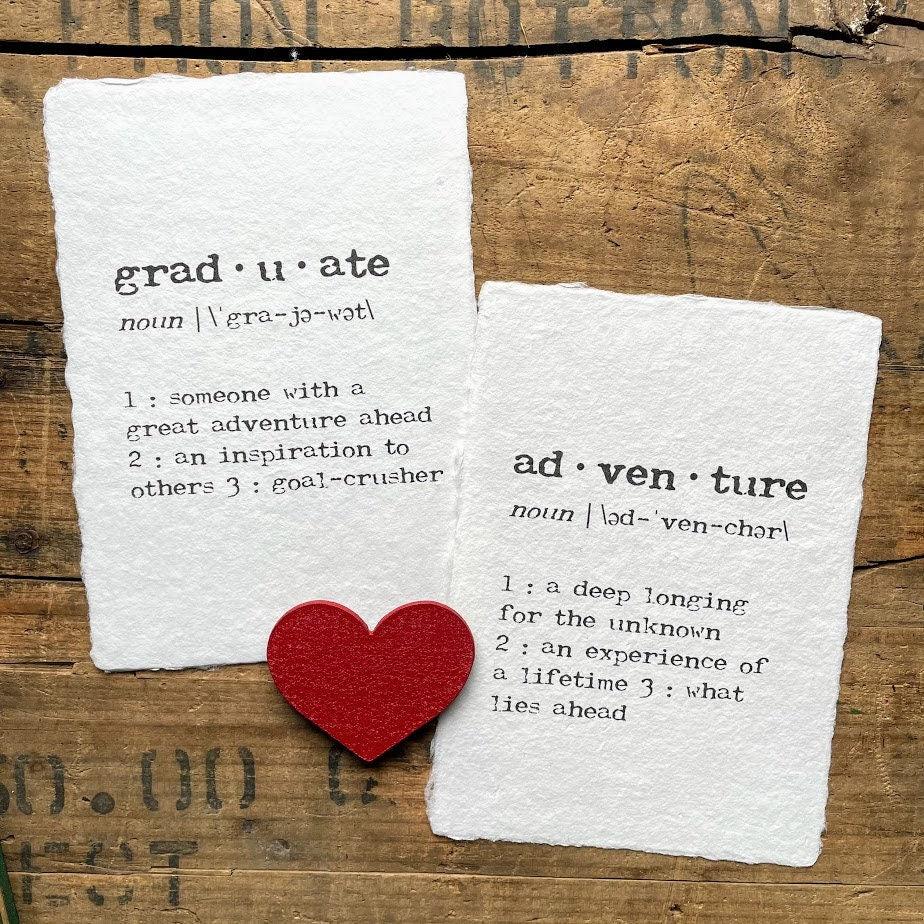 grad·u·ate
noun | \ˈgra-jə-wət\
1 : someone with a
great adventure ahead
2 : an inspiration to
others 3 : goal-crusher
ad·ven·ture
noun | \əd-ˈven-chər\
1 : a deep longing
for the unknown
2 : an experience of
a lifetime 3 : what
lies ahead